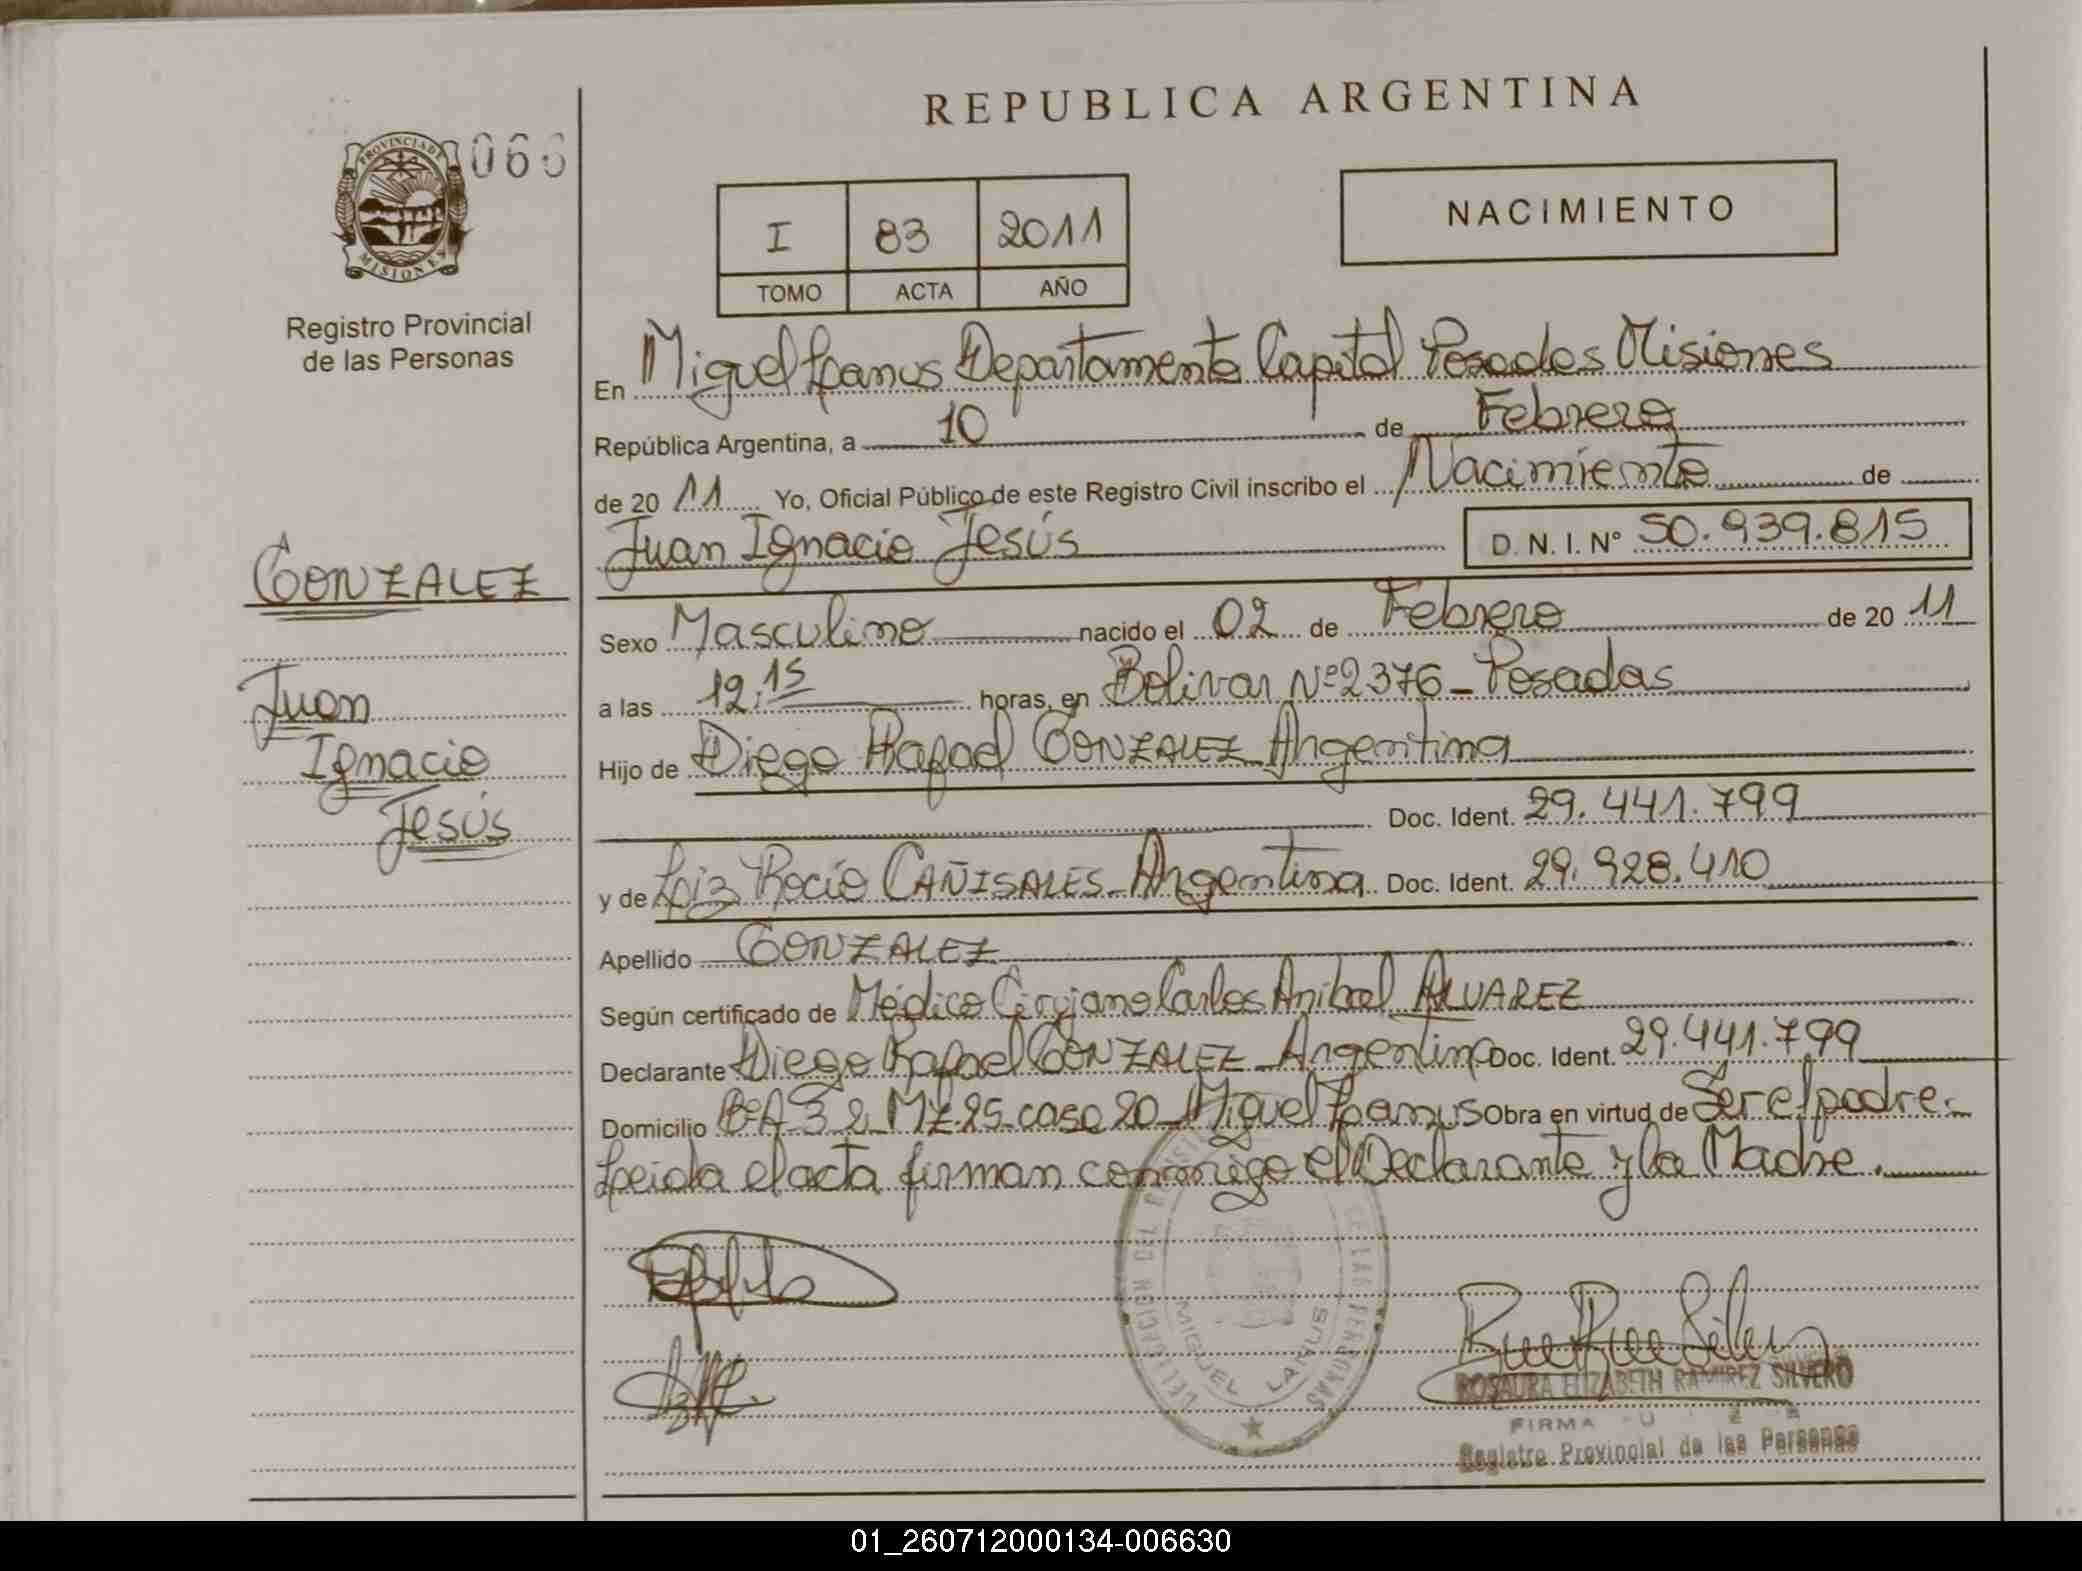 REPUBLICA ARGENTINA
PROVINCIA DE
MISIONES
066
NACIMIENTO
I 83 2011
TOMO ACTA AÑO
Registro Provincial
de las Personas
En Miguel Lanus Departamento Capital Posadas Misiones
República Argentina, a 10 de Febrero
de 20 11 Yo, Oficial Público de este Registro Civil inscribo el Nacimiento de
Juan Ignacio Jesús D. N. I. N° 50.939.815
GONZALEZ
Juan
Ignacio
Jesús
Sexo Masculino nacido el 02 de Febrero de 20 11
a las 12:15 horas, en Bolivar Nº 2376 - Posadas
Hijo de Diego Rafael GONZALEZ - Argentina
Doc. Ident. 29.441.799
y de Loiz Rocío CAÑISALES - Argentina Doc. Ident. 29.928.410
Apellido GONZALEZ
Según certificado de Médico Cirujano Carlos Anibal ALVAREZ
Declarante Diego Rafael GONZALEZ - Argentina Doc. Ident. 29.441.799
Domicilio Mz. 25 - casa 20 - Miguel Lanus Obra en virtud de Ser el padre.-
Leida el acta firman conmigo el Declarante y la Madre.
DELEGACION DEL REGISTRO DE LAS PERSONAS
MIGUEL LANUS
ROSAURA ELIZABETH RAMIREZ SILVERO
FIRMA
Registro Provincial de las Personas
01_260712000134-006630